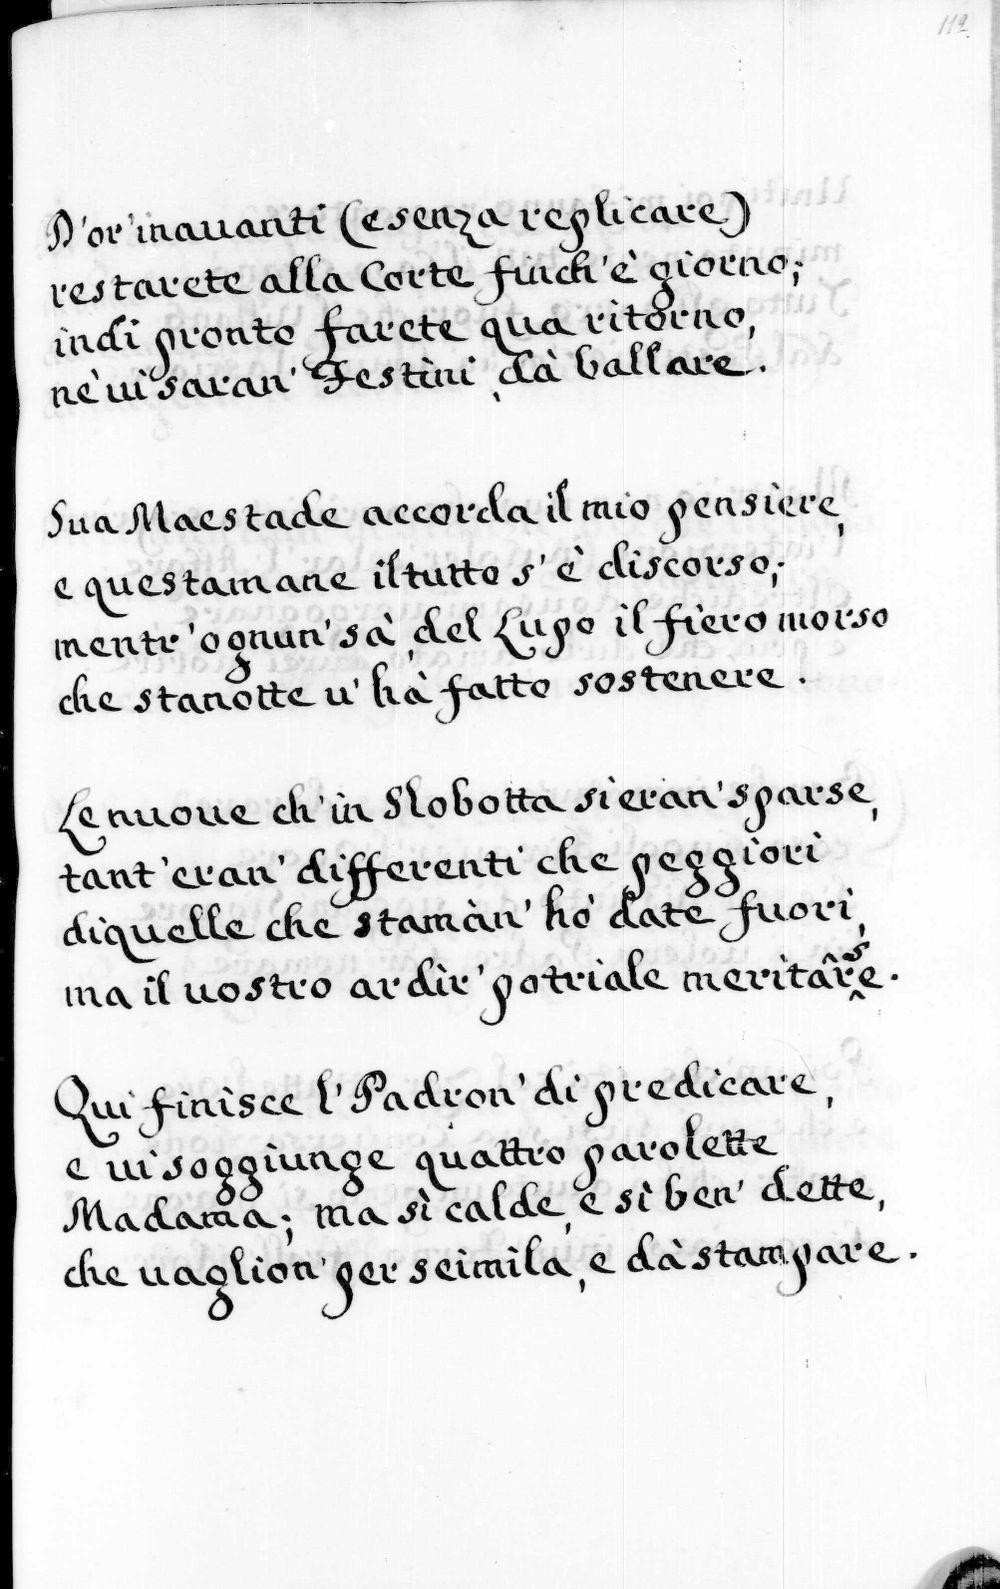 112
D'or'inauanti (e senza replicare)
restarete alla Corte finch'è giorno;
indi pronto farete qua ritorno,
nè ui saran' Festini dà ballare.
Sua Maestade accorda il mio pensiere,
e questamane il tutto s'è discorso;
mentr'ognun' sà del Lupo il fiero morso
che stanotte u'hà fatto sostenere.
Le nuoue ch'in Slobotta si eran' sparse,
tant'eran' differenti che peggiori
di quelle che staman' hò date fuori,
ma il uostro ardir' potria le meritarse.
Qui finisce l'Padron' di predicare,
e ui soggiunge quattro parolette
Madama; ma sì calde, e sì ben' dette,
che uaglion' per seimila, e dà stampare.